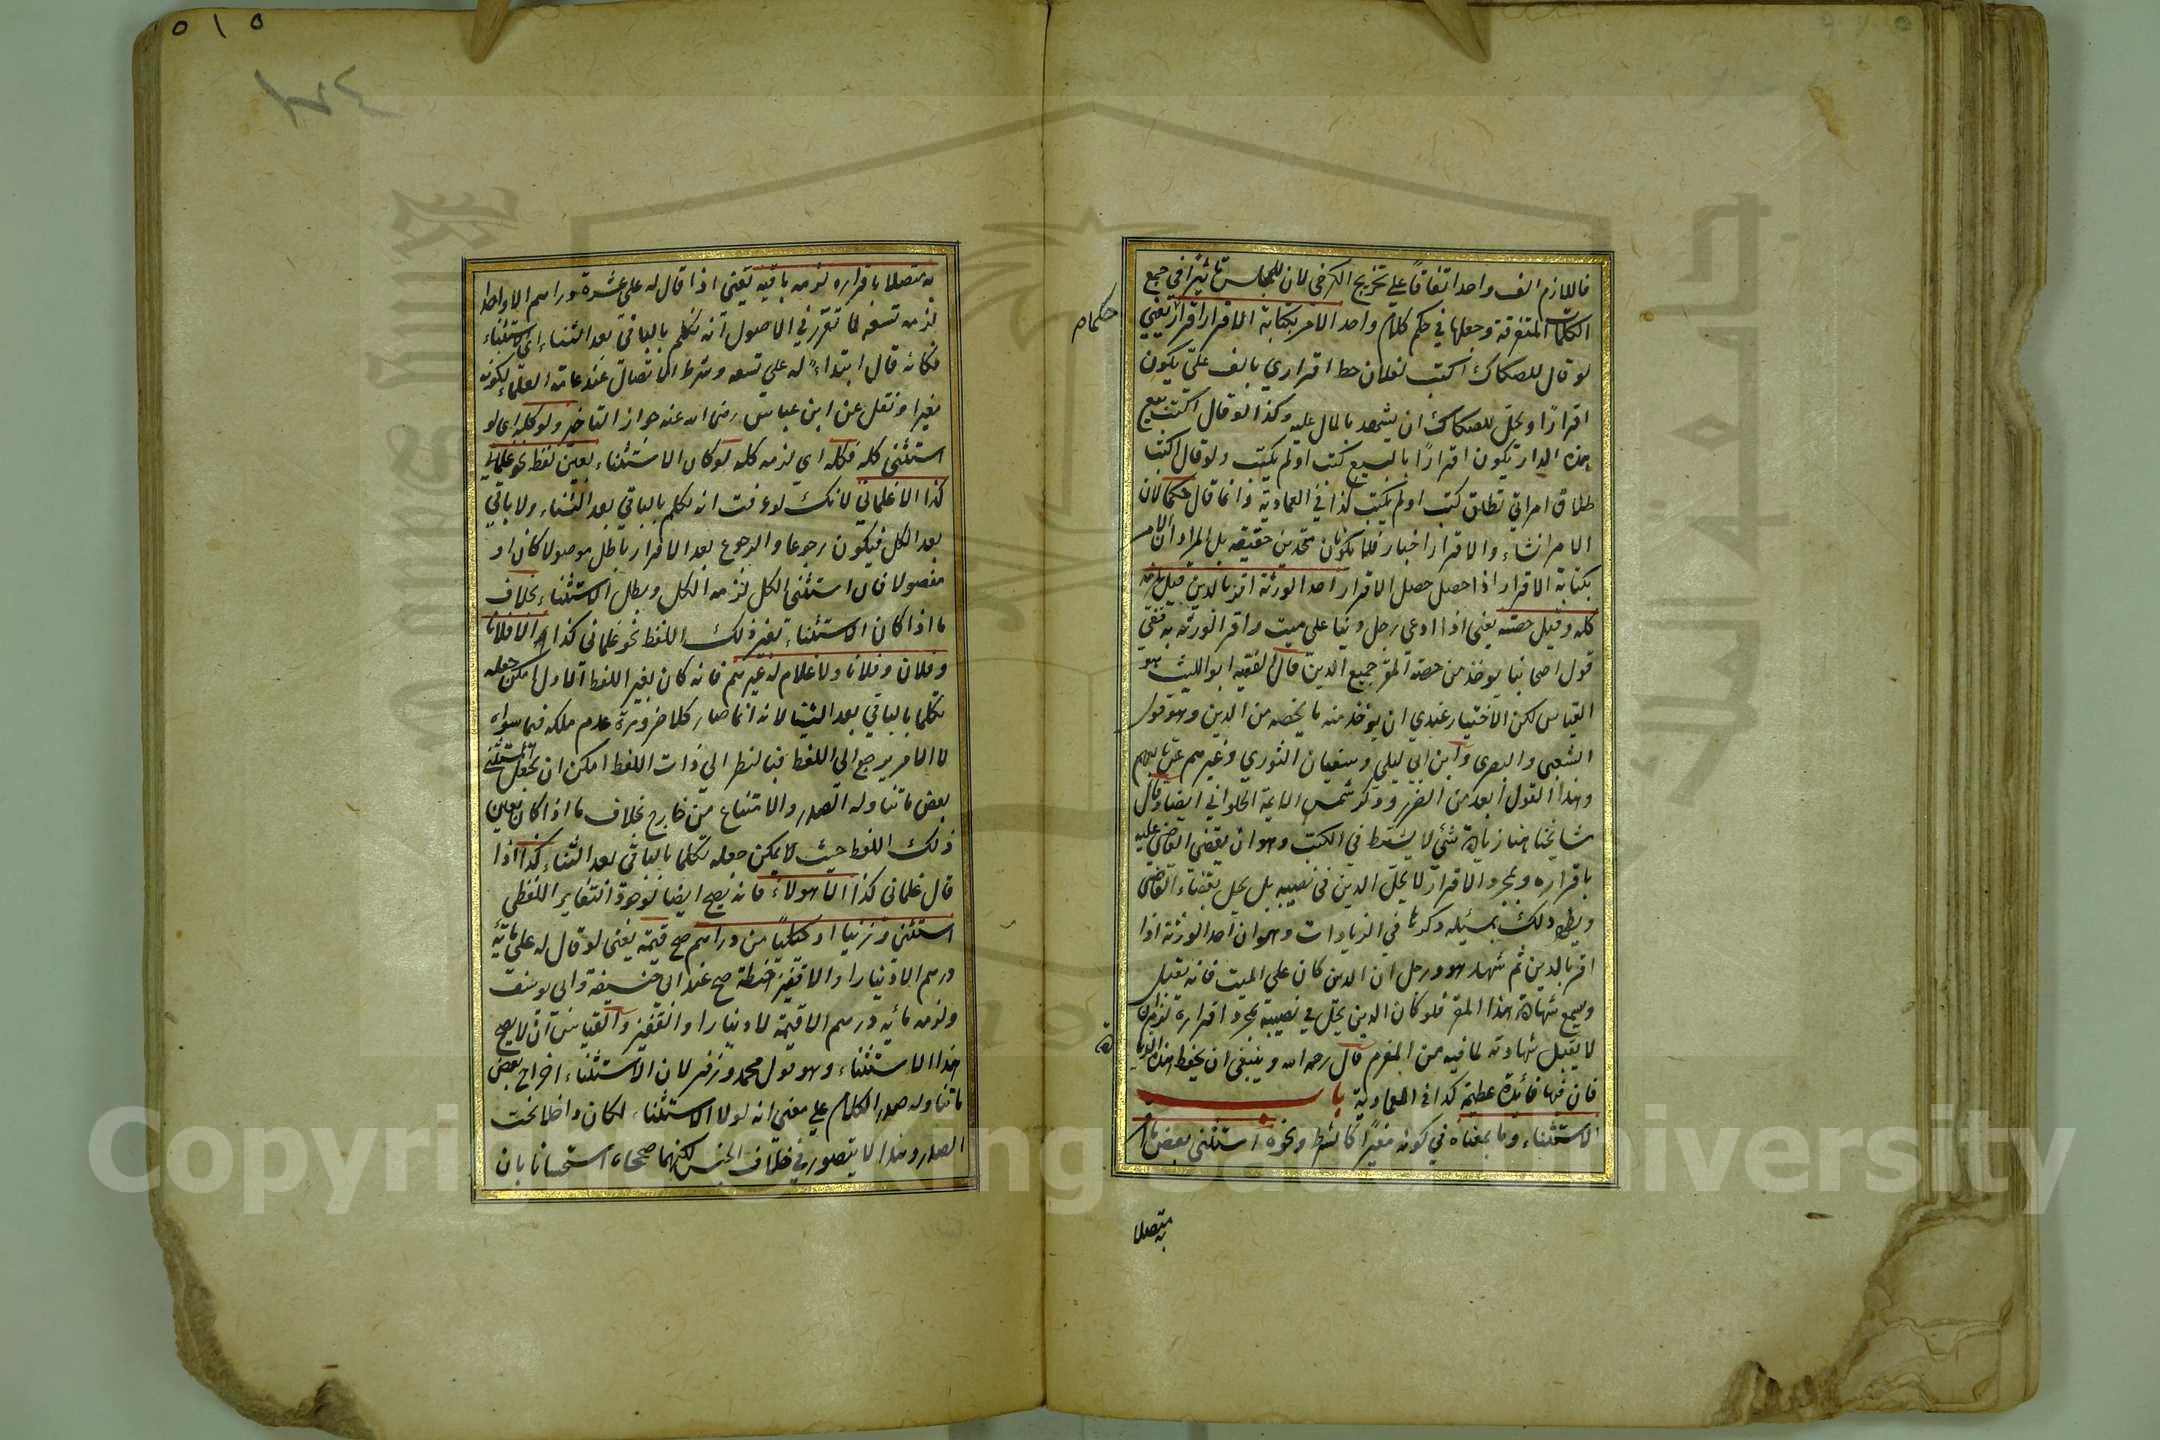 فاللازم الف واحد اتفاقا على تخريج الكرخي لان للمجلس تأثيرا في جمع
الكلمات المتفرقة وجعلها في حكم كلام واحد الامر بكتابة الاقرار اقرار يعني
حكما م
لو قال للصكاك اكتب لفلان خط اقراري بالف علي يكون
اقرارا ويحل للصكاك ان يشهد بالمال عليه وكذا لو قال اكتب بيع
هذه الدار يكون اقرارا بالبيع كتب او لم يكتب ولو قال اكتب
طلاق امراتي تطلق كتب او لم يكتب كذا في العمادية وانما قال حكما لان
الامر انشاء والاقرار اخبار فلا يكونان متحدين حقيقة بل المراد ان الامر
بكتابة الاقرار اذا حصل حصل الاقرار احد الورثة اقر بالدين قيل يلزمه
كله وقيل حصته يعني اذا ادعى رجل دينا على ميت واقر الورثة به ففي
قول اصحابنا يوخذ من حصة المقر جميع الدين قال الفقيه ابو الليث هو
القياس لكن الاختيار عندي ان يؤخذ منه ما يخصه من الدين وهو قول
الشعبي والبصري وابن ابي ليلى وسفيان الثوري وغيرهم ممن تابعهم
وهذا القول ابعد من الضرر وذكر شمس الايمة الحلواني ايضا وقال
مشايخنا هنا زيادة شئ لا يشترط في الكتب وهو ان يقضي القاضي عليه
باقراره وبمجرد الاقرار لا يحل الدين في نصيبه بل يحل بقضاء القاضي
ويظهر ذلك بمسئلة ذكرها في الزيادات وهو ان احد الورثة اذا
اقر بالدين ثم شهد هو ورجل ان الدين كان على الميت فانه يقبل
ويسمع شهادة هذا المقر فلو كان الدين يحل في نصيبه بمجرد اقراره لزم ان
لا يقبل شهادته لما فيه من المغرم قال رحمه الله وينبغي ان يحفظ هذه الزيادة
فان فيها فائدة عظيمة كذا في العمادية باب
الاستثناء وما بمعناه في كونه مغيرا كالشرط ونحوه استثنى بعض ما اقر
به متصلا
٥١٥
به متصلا باقراره لزمه باقيه يعني اذا قال له علي عشرة دراهم الا واحدا
لزمه تسعة لما تقرر في الاصول انه تكلم بالباقي بعد الثنيا اي الاستثناء
فكانه قال ابتداء له علي تسعة وشرط الاتصال عند عامة العلماء لكونه
مغيرا ونقل عن ابن عباس رضي الله عنه جواز التاخير ولو كله اي لو
استثنى كله فكله اي لزمه كله لو كان الاستثناء بعين لفظه نحو غلماني
كذا الا غلماني لانك لو عرفت انه تكلم بالباقي بعد الثنيا ولا باقي
بعد الكل فيكون رجوعا والرجوع بعد الاقرار باطل موصولا كان او
مفصولا فان استثنى الكل لزمه الكل وبطل الاستثناء بخلاف
ما اذا كان الاستثناء بغير ذلك اللفظ نحو غلماني كذا الا فلانا
وفلان وفلانا ولا غلام له غيرهم فانه كان بغير اللفظ الاول امكن جعله
تكلما بالباقي بعد الثنيا لانه انما صار كلا ضرورة عدم ملكه فيما سواه
لا لامر يرجع الى اللفظ فبالنظر الى ذات اللفظ امكن ان يجعل المستثنى
بعض ما تناوله الصدر والامتناع من خارج بخلاف ما اذا كان بعين
ذلك اللفظ حيث لا يمكن جعله تكلما بالباقي بعد الثنيا كذا اذا
قال غلماني كذا الا هولاء فانه يصح ايضا لوجود التغاير اللفظي
استثنى وزنيا او كيليا من دراهم صح قيمة يعني لو قال له علي مائة
درهم الا دينارا والا قفيز حنطة صح عند ابي حنيفة وابي يوسف
ولزمه مائة درهم الا قيمة لا دينارا والقفيز والقياس ان لا يصح
هذا الاستثناء وهو قول محمد وزفر لان الاستثناء اخراج بعض
ما تناوله صدر الكلام على معنى انه لولا الاستثناء لكان داخلا تحت
الصدر وهذا لا يتصور في خلاف الجنس لكنهما صححاه استحسانا بان
Copyright © King Saud University